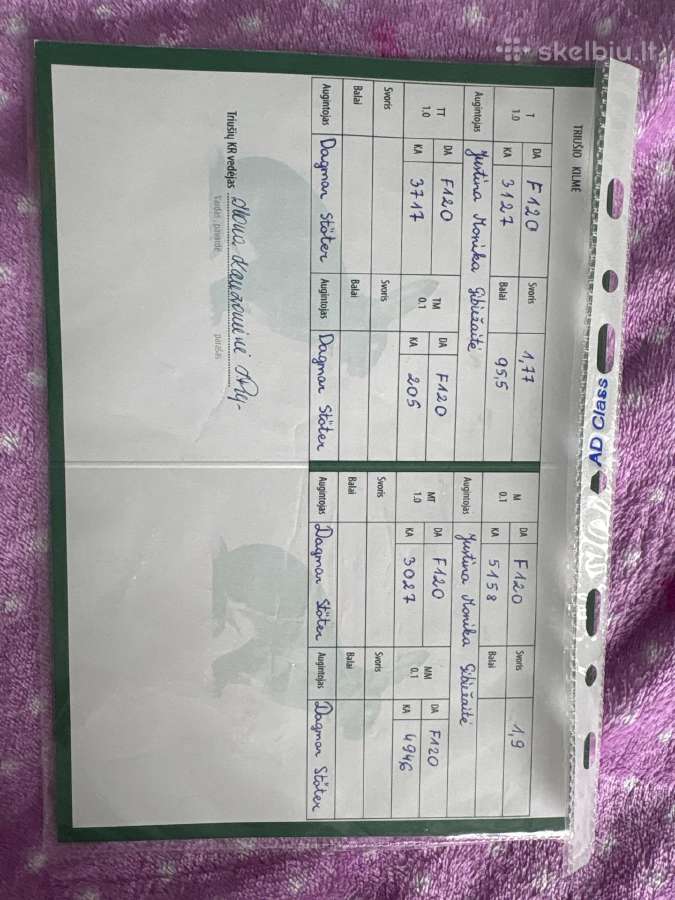 skelbiu.lt
AD Class
TRIUŠIO KILMĖ
T 1.0 DA F120 Svoris 1,77
KA 3127 Balai 95,5
Augintojas Justina Monika Gibiežaitė
TT 1.0 DA F120
KA 3717
Svoris
Balai
Augintojas Dagmar Stöter
TM 0.1 DA F120
KA 205
Svoris
Balai
Augintojas Dagmar Stöter
M 0.1 DA F120 Svoris 1,9
KA 5158 Balai
Augintojas Justina Monika Gibiežaitė
MT 1.0 DA F120
KA 3027
Svoris
Balai
Augintojas Dagmar Stöter
MM 0.1 DA F120
KA 4946
Svoris
Balai
Augintojas Dagmar Stöter
Triušių KR vedėjas
Vardas, pavardė parašas